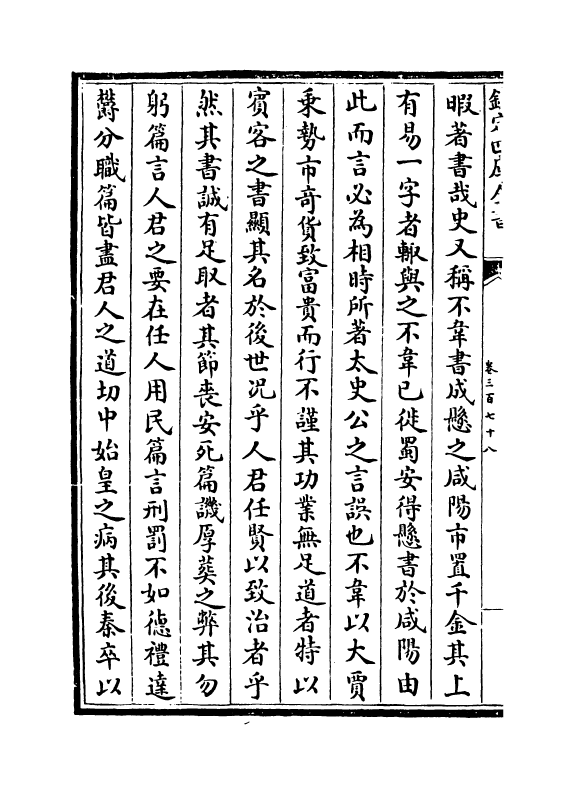 欽定四庫全書
卷三百七十八
暇著書哉史又稱不韋書成懸之咸陽市置千金其上
有易一字者輙與之不韋已徙蜀安得懸書於咸陽由
此而言必為相時所著太史公之言誤也不韋以大賈
乘勢市竒貨致富貴而行不謹其功業無足道者特以
賓客之書顯其名於後世况乎人君任賢以致治者乎
然其書誠有足取者其節喪安死篇譏厚葬之弊其勿
躬篇言人君之要在任人用民篇言刑罰不如德禮達
欝分職篇皆盡君人之道切中始皇之病其後秦卒以